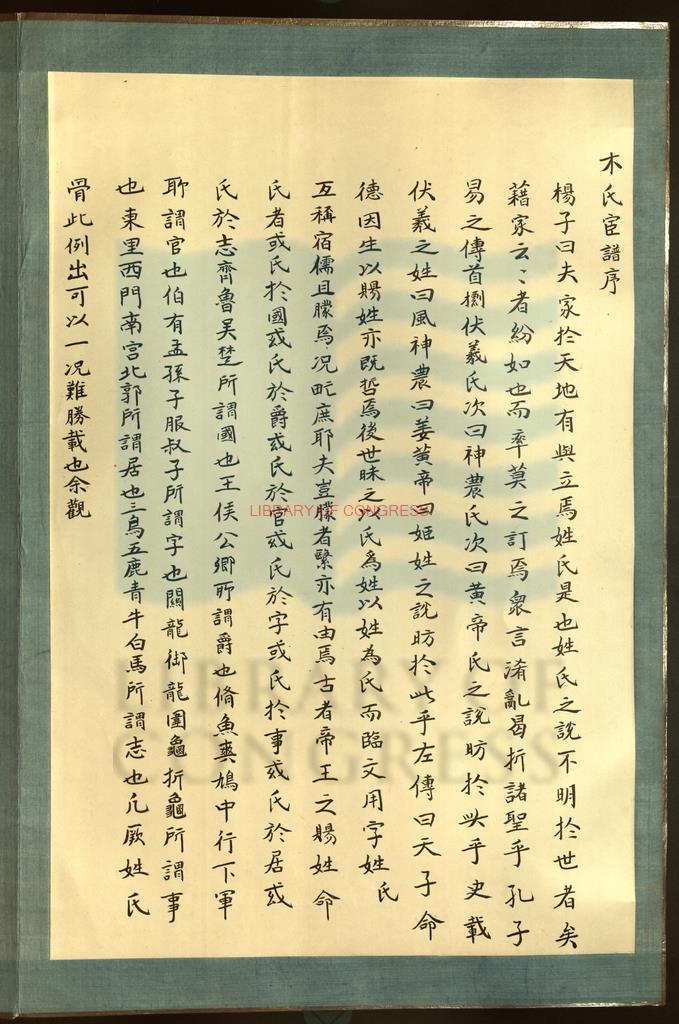 木氏宦譜序
楊子曰夫家於天地有與立焉姓氏是也姓氏之說不明於世者矣
藉家云々者紛如也而率莫之訂焉衆言淆亂曷折諸聖乎孔子
易之傳首劄伏羲氏次曰神農氏次曰黃帝氏之說昉於此乎史載
伏羲之姓曰風神農曰姜黃帝曰姬姓之說昉於此乎左傳曰天子命
德因生以賜姓亦既哲焉後世昧之以氏爲姓以姓為氏而臨文用字姓氏
互稱宿儒且朦焉况甿庶耶夫豈朦者繄亦有由焉古者帝王之賜姓命
氏者或氏於國或氏於爵或氏於官或氏於字或氏於事或氏於居或
氏於志齊魯吳楚所謂國也王侯公卿所謂爵也脩魚爽鳩中行下軍
所謂官也伯有孟孫子服叔子所謂字也關龍御龍圉龜折龜所謂事
也東里西門南宮北郭所謂居也三烏五鹿青牛白馬所謂志也凡厥姓氏
骨此例出可以一况難勝載也余觀
LIBRARY OF CONGRESS
LIBRARY OF
CONGRESS